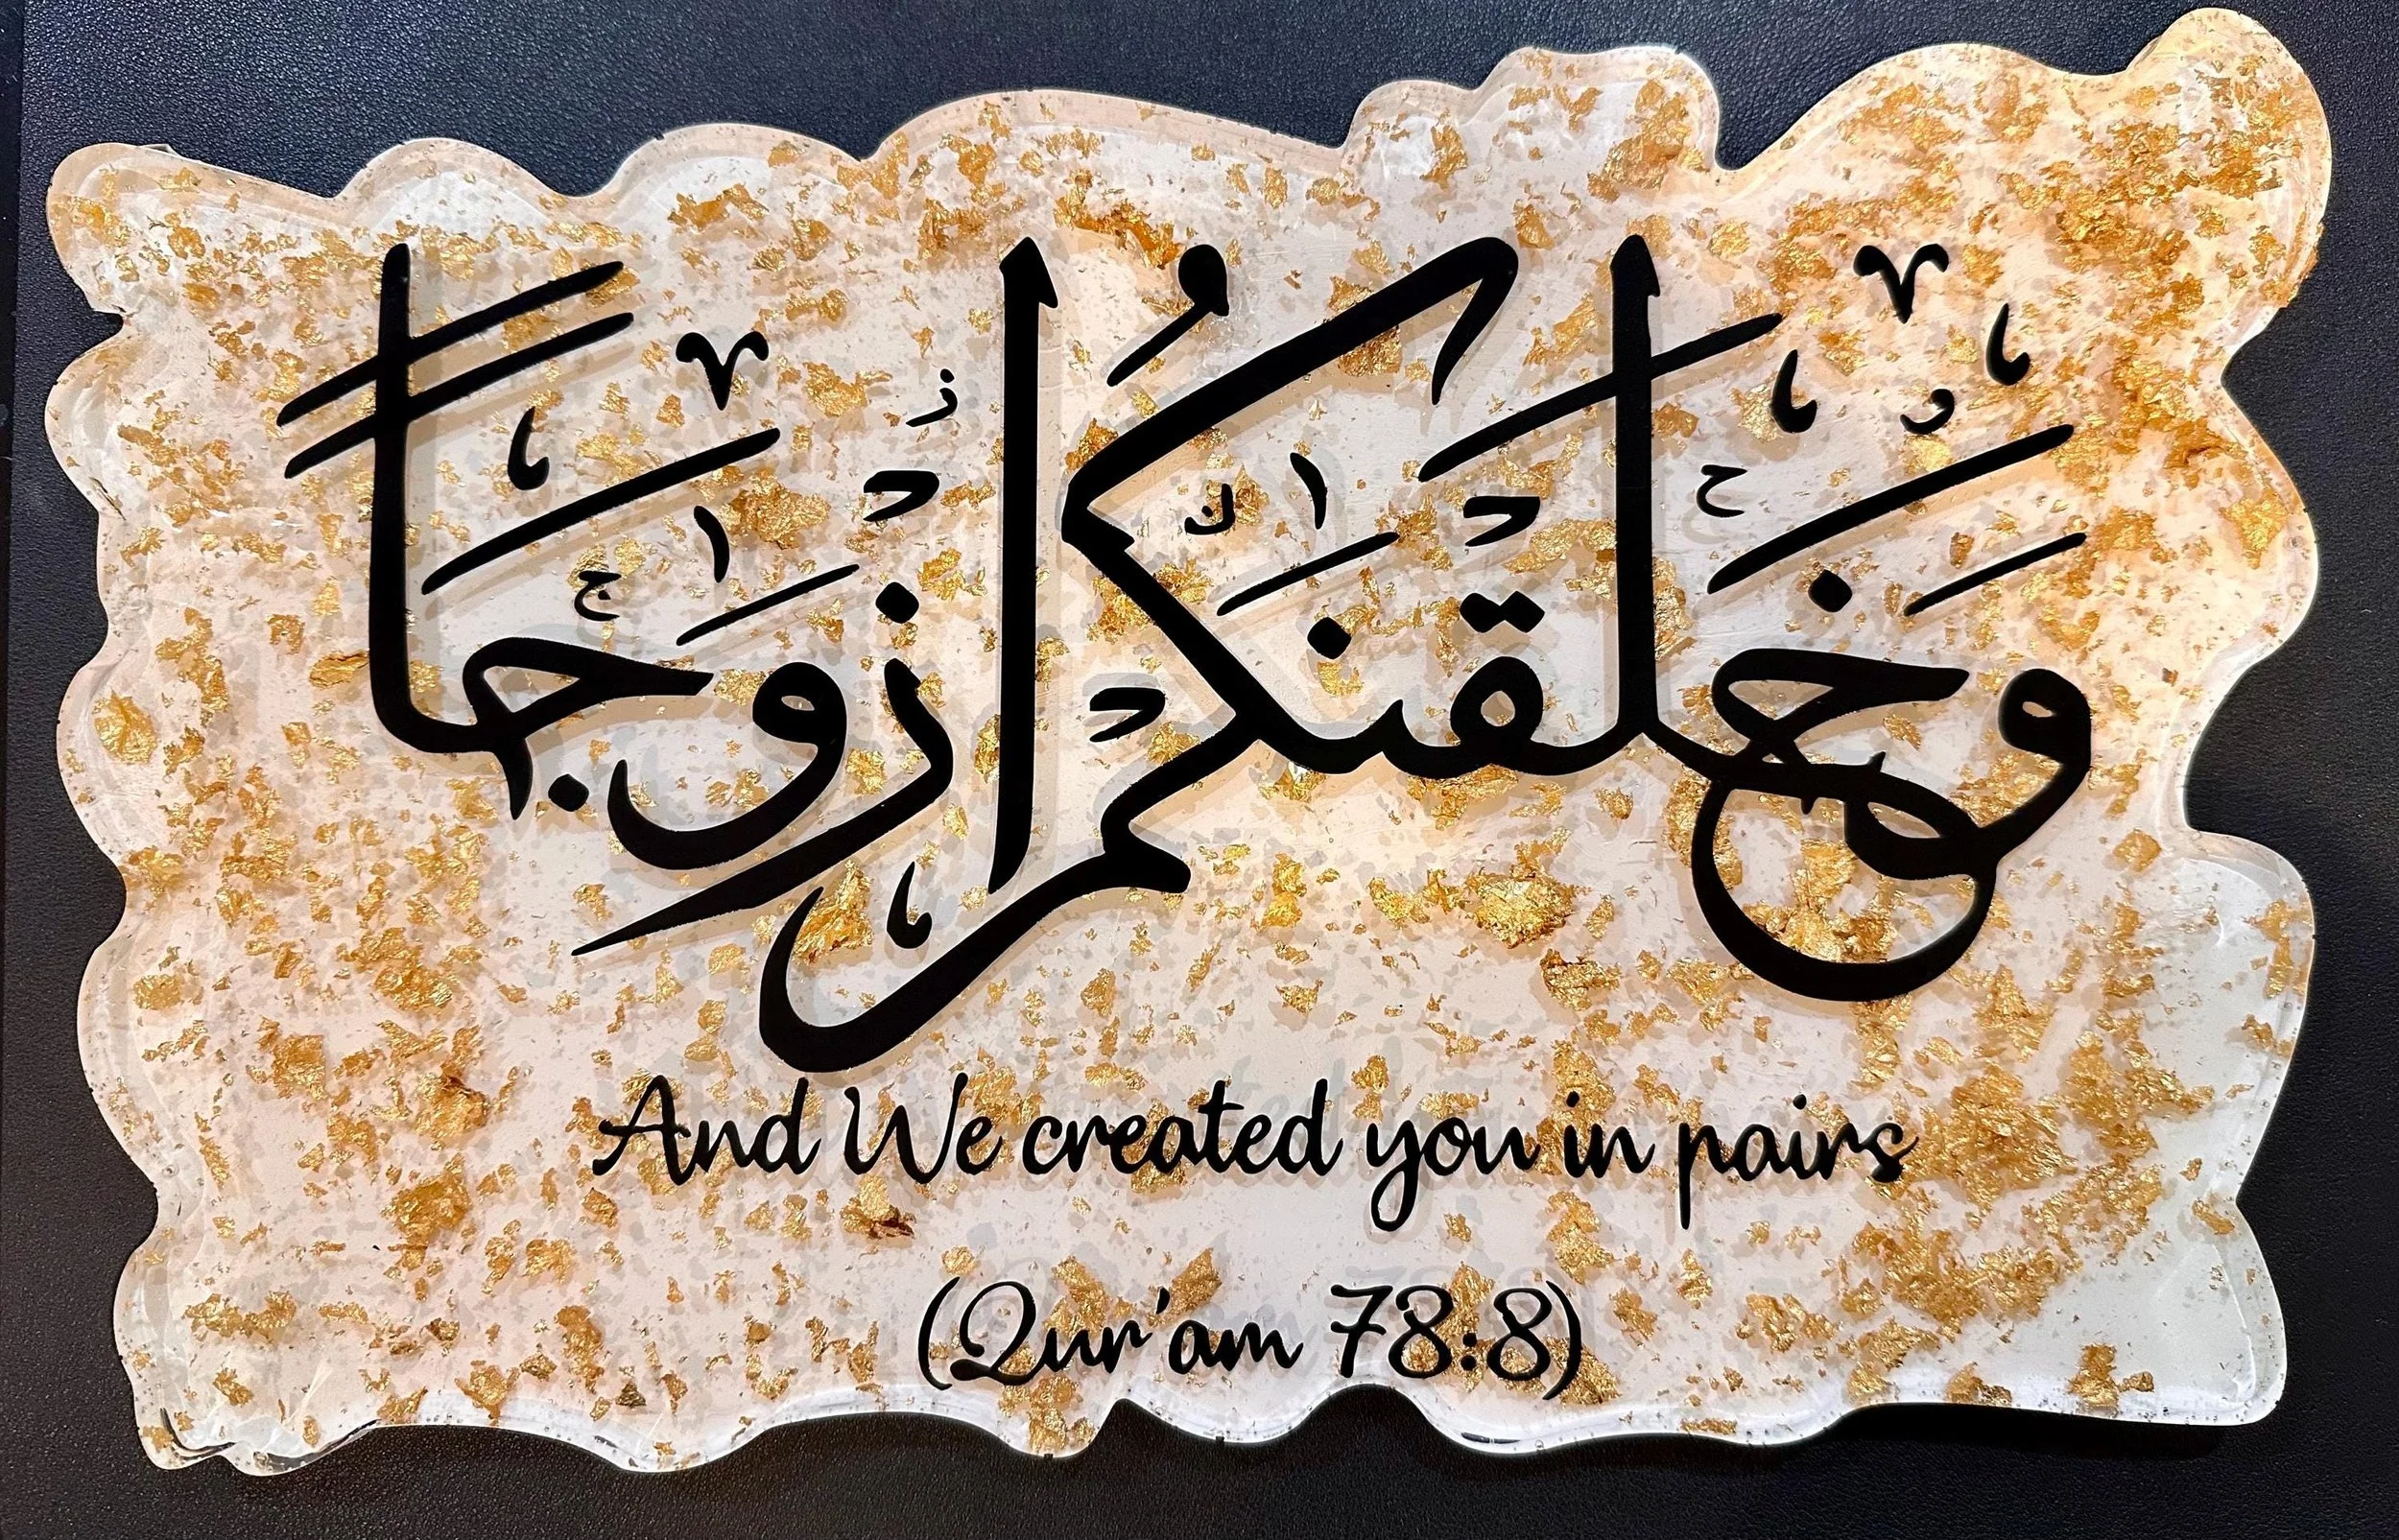 وَخَلَقْنَكُمْ أَزْوَجًا
And We created you in pairs
(Qur'am 78:8)